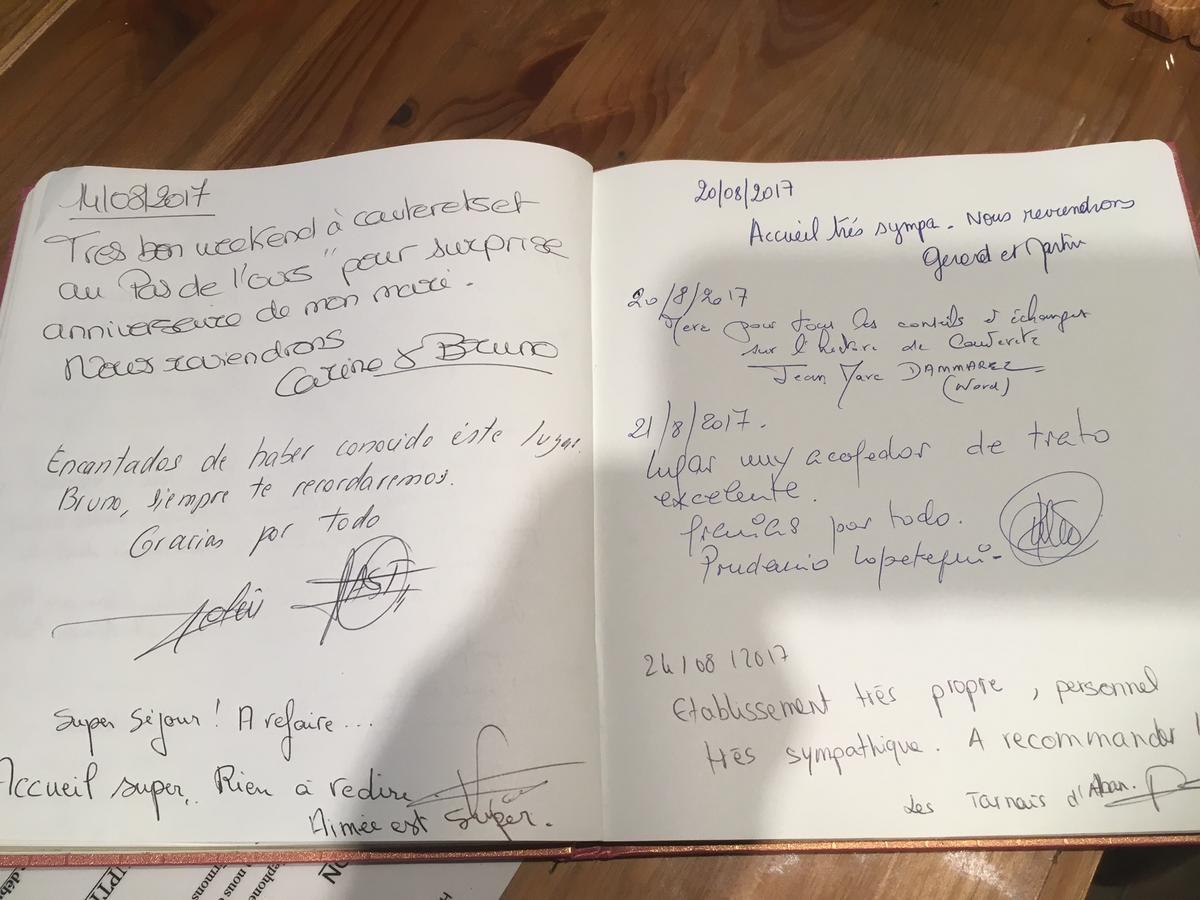 14/08/2017
Tres bon weekend à cauteretset
au Pas de l'ours" pour surprise
anniversaire de mon mari.
Nous reviendrons
Carine & Bruno
Encantados de haber conocido éste lugar.
Bruno, siempre te recordaremos.
Gracias por todo
Super séjour ! A refaire...
Accueil super. Rien à redire
Aimée est super.
20/08/2017
Accueil très sympa. Nous reviendrons
Gerard et Martin
20/8/2017
Merci pour tous les conseils et échanges
sur l'histoire de Cauterets
Jean Marc DAMMAREZ
(Nord)
21/8/2017.
lugar muy acogedor de trato
excelente.
Gracias por todo.
Prudencio Lopetegui
24/08/2017
Etablissement très propre, personnel
très sympathique. A recommander !
Les Tarnais d'Alban.